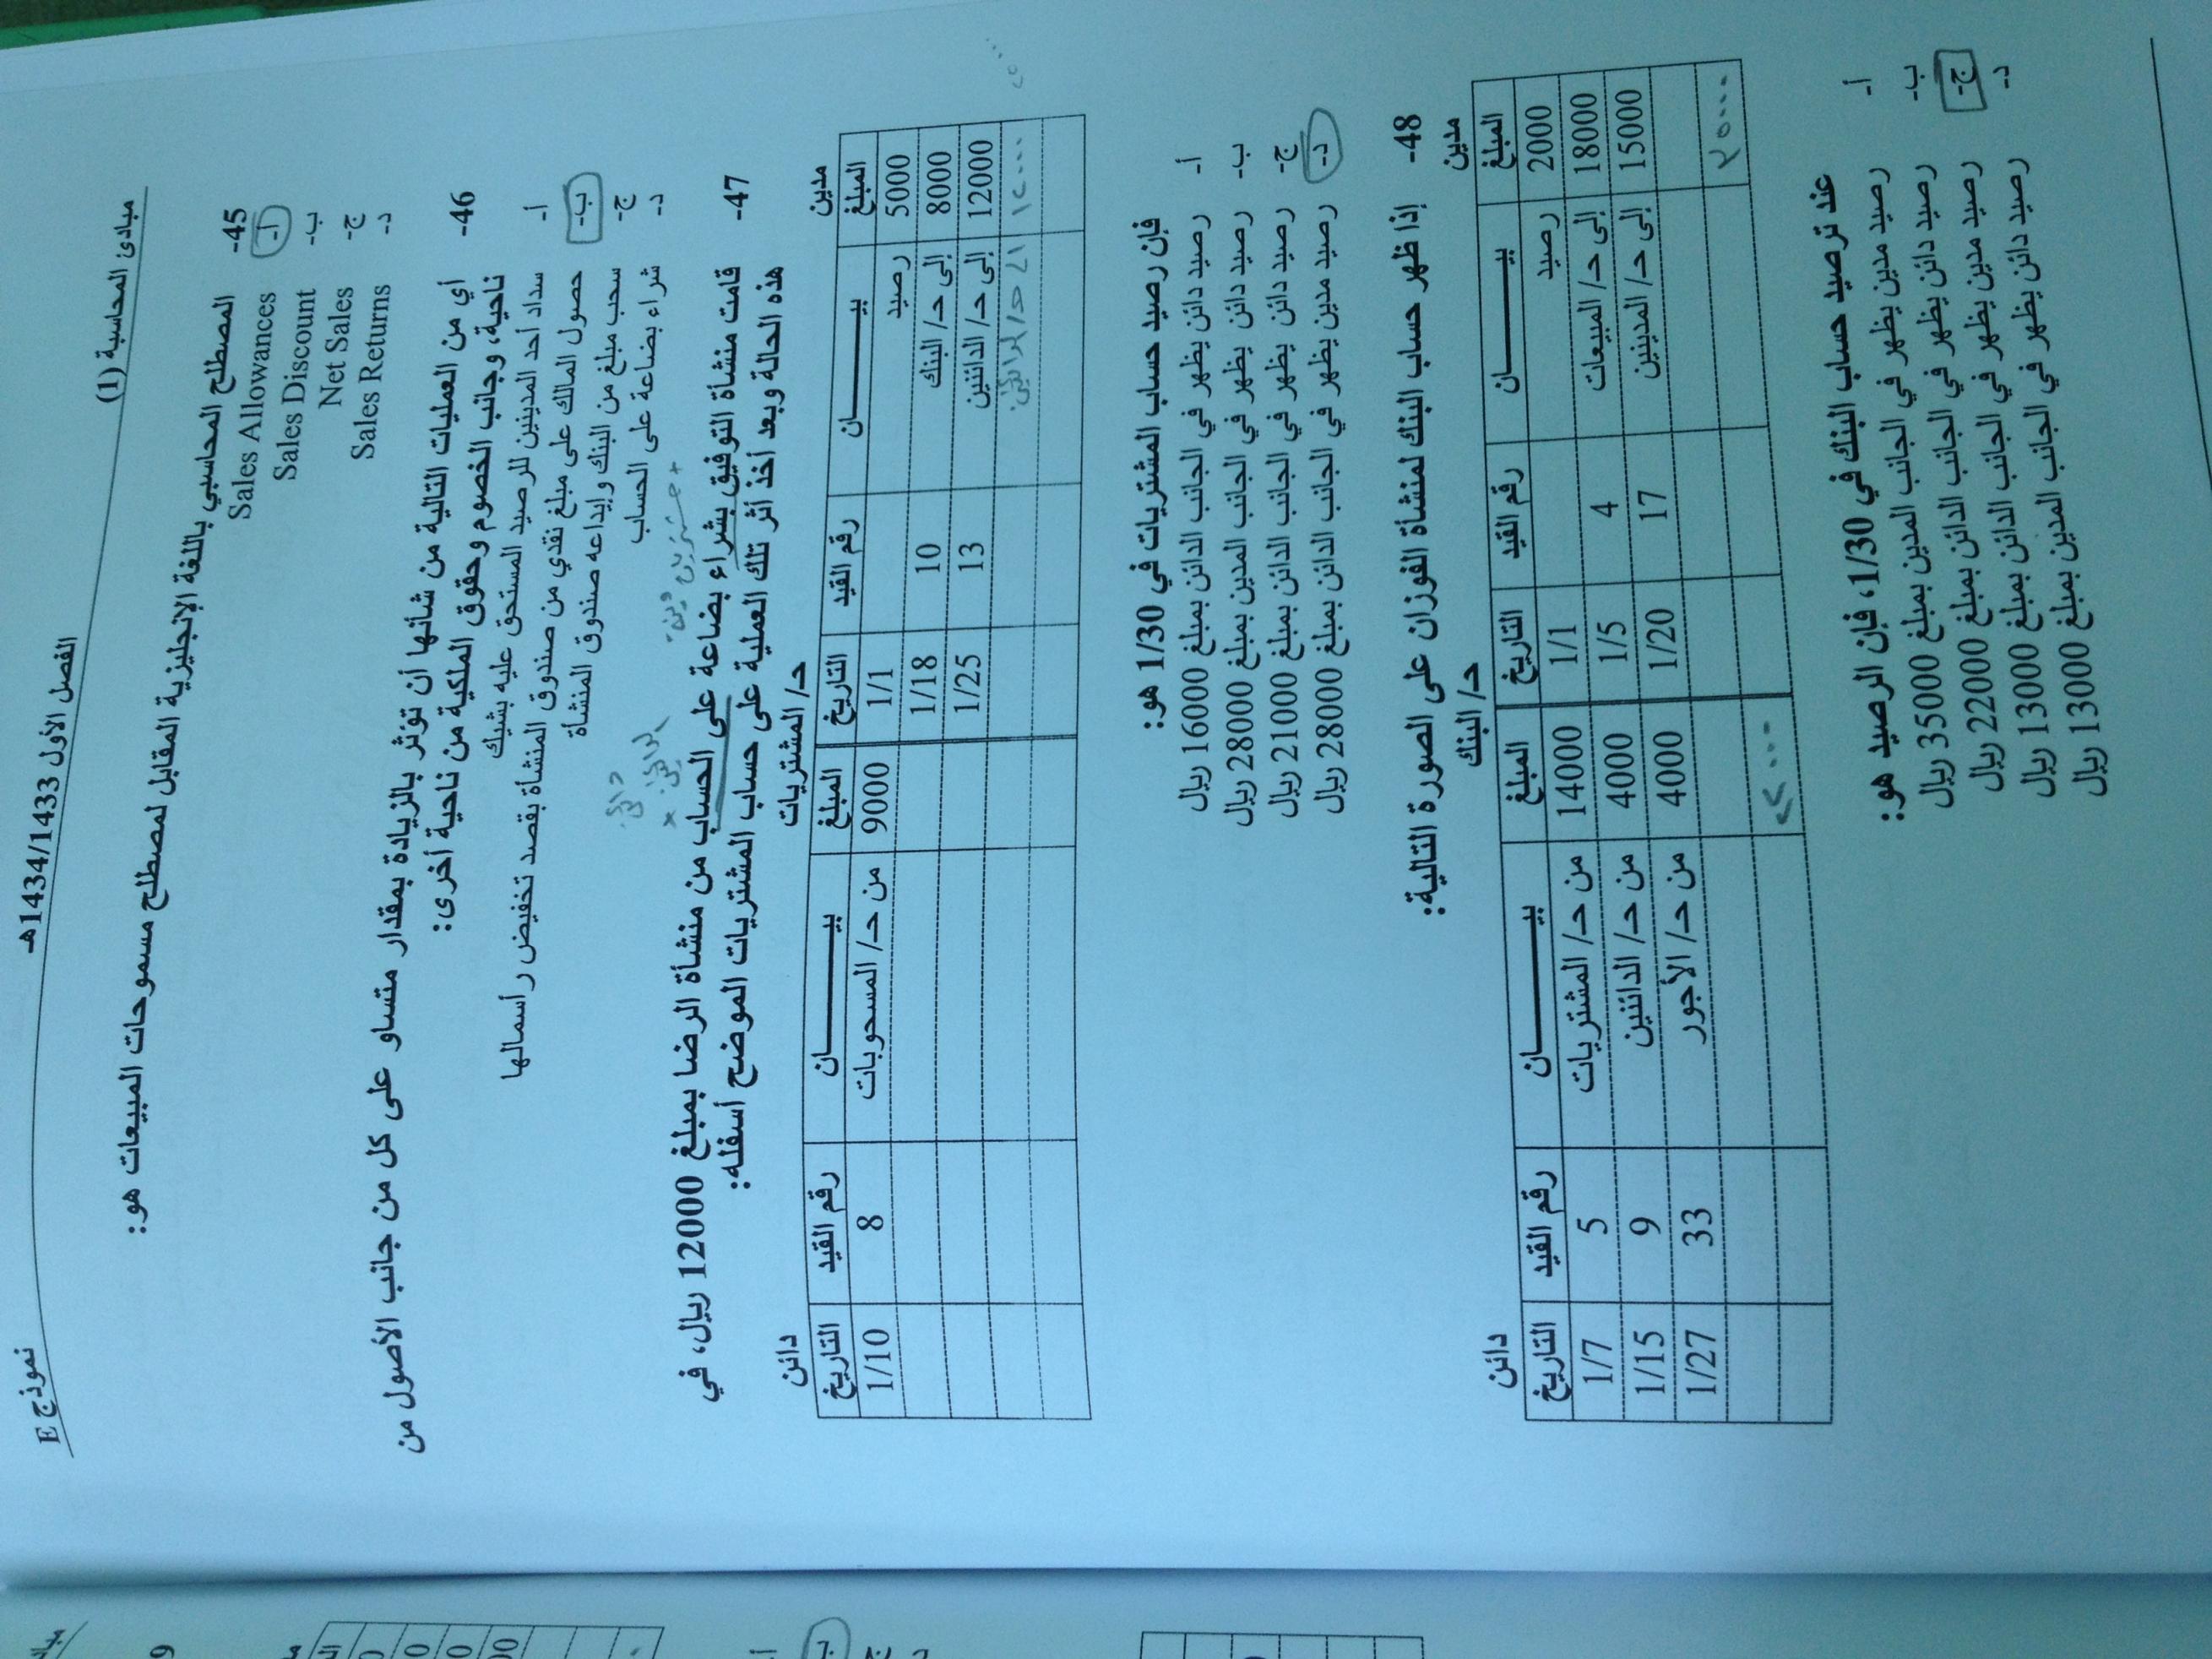 مبادئ المحاسبة (1) الفصل الأول 1434/1433هـ نموذج E
45- المصطلح المحاسبي باللغة الإنجليزية المقابل لمصطلح مسموحات المبيعات هو:
أ- Sales Allowances
ب- Sales Discount
ج- Net Sales
د- Sales Returns
46- أي من العمليات التالية من شأنها أن تؤثر بالزيادة بمقدار متساو على كل من جانب الأصول من
ناحية، وجانب الخصوم وحقوق الملكية من ناحية أخرى:
أ- سداد أحد المدينين للرصيد المستحق عليه بشيك
ب- حصول المالك على مبلغ نقدي من صندوق المنشأة بقصد تخفيض رأسمالها
ج- سحب مبلغ من البنك وإيداعه صندوق المنشأة
د- شراء بضاعة على الحساب
47- قامت منشأة التوفيق بشراء بضاعة على الحساب من منشأة الرضا بمبلغ 12000 ريال، في
هذه الحالة وبعد أخذ أثر تلك العملية على حساب المشتريات الموضح أسفله:
مدين حـ/ المشتريات دائن
المبلغ بيـــــان رقم القيد التاريخ المبلغ بيـــــان رقم القيد التاريخ
5000 رصيد 1/1 9000 من حـ/ المسحوبات 8 1/10
8000 إلى حـ/ البنك 10 1/18
12000 إلى حـ/ الدائنين 13 1/25
١٢٠٠٠
فإن رصيد حساب المشتريات في 1/30 هو:
أ- رصيد دائن يظهر في الجانب الدائن بمبلغ 16000 ريال
ب- رصيد دائن يظهر في الجانب المدين بمبلغ 28000 ريال
ج- رصيد دائن يظهر في الجانب الدائن بمبلغ 21000 ريال
د- رصيد مدين يظهر في الجانب الدائن بمبلغ 28000 ريال
48- إذا ظهر حساب البنك لمنشأة الفوزان على الصورة التالية:
مدين حـ/ البنك دائن
المبلغ بيـــــان رقم القيد التاريخ المبلغ بيـــــان رقم القيد التاريخ
2000 رصيد 1/1 14000 من حـ/ المشتريات 5 1/7
18000 إلى حـ/ المبيعات 4 1/5 4000 من حـ/ الدائنين 9 1/15
15000 إلى حـ/ المدينين 17 1/20 4000 من حـ/ الأجور 33 1/27
٣٥٠٠٠ ٢٢٠٠٠
عند ترصيد حساب البنك في 1/30، فإن الرصيد هو:
أ- رصيد مدين يظهر في الجانب المدين بمبلغ 35000 ريال
ب- رصيد دائن يظهر في الجانب الدائن بمبلغ 22000 ريال
ج- رصيد مدين يظهر في الجانب الدائن بمبلغ 13000 ريال
د- رصيد دائن يظهر في الجانب المدين بمبلغ 13000 ريال